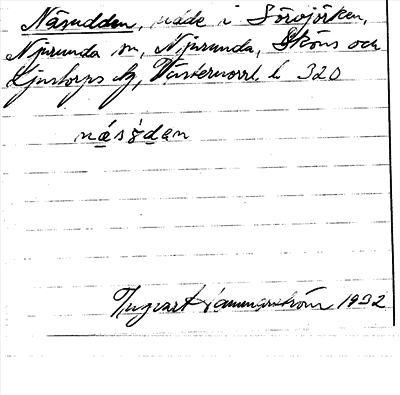 Näsudden, udde i Sörbjörken,
Njurunda sn, Njurunda, Sköns och
Ljustorps tg, Västernorrl. l. 320
násødan
Ingvart Hammarström 1932